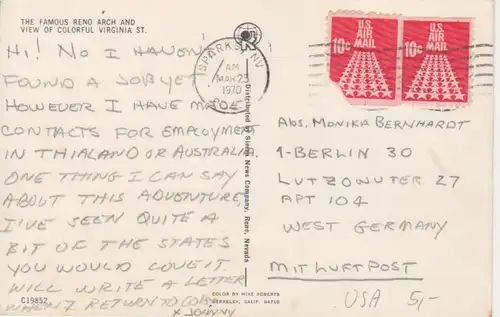 THE FAMOUS RENO ARCH AND
VIEW OF COLORFUL VIRGINIA ST.
HI! NO I HAVEN'T
FOUND A JOB YET
HOWEVER I HAVE MADE
CONTACTS FOR EMPLOYMENT
IN THIALAND OR AUSTRALIA.
ONE THING I CAN SAY
ABOUT THIS ADVENTURE
I'VE SEEN QUITE A
BIT OF THE STATES
YOU WOULD LOVE IT
WILL WRITE A LETTER
WHEN I RETURN TO
X JOHNNY
C19852
COLOR BY MIKE ROBERTS
BERKELEY, CALIF. 94710
Distributed by Sierra News Company, Reno, Nevada
SPARKS, NV
AM
MAR 23
1970
U.S.
AIR
MAIL
10c
U.S.
AIR MAIL
10c
Abs. MONIKA BERNHARDT
1-BERLIN 30
LUTZOWUTER 27
APT 104
WEST GERMANY
MIT LUFTPOST
USA 5,-